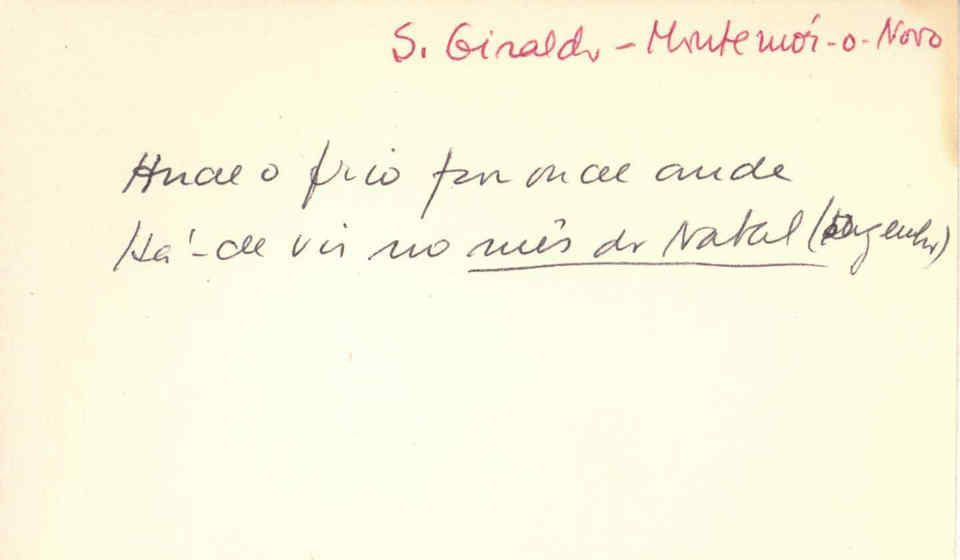 S. Giraldo - Montemór-o-Novo
Ande o frio por onde ande
Há-de vir no mês do Natal (Dezembro)